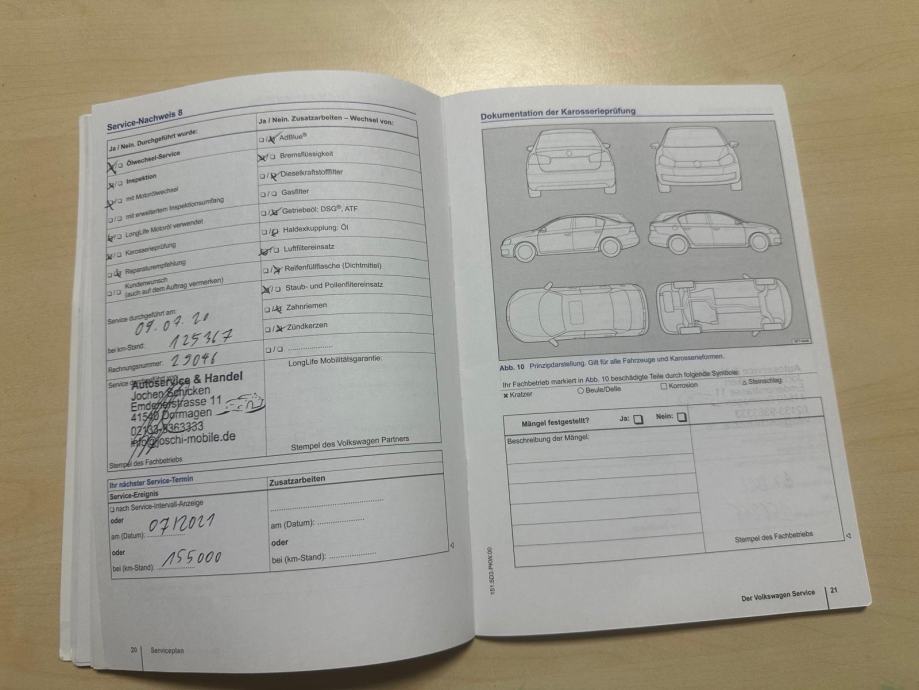 Service-Nachweis 8
Ja / Nein. Durchgeführt wurde:
Ölwechsel-Service
Inspektion
mit Motorölwechsel
mit erweitertem Inspektionsumfang
LongLife Motoröl verwendet
Karosserieprüfung
Reparaturempfehlung
Kundenwunsch
(auch auf dem Auftrag vermerken)
Service durchgeführt am:
09.07.20
bei km-Stand: 125367
Rechnungsnummer: 29046
Autoservice & Handel
Jochen Schicken
Emdenerstrasse 11
41540 Dormagen
02133-9363333
info@joschi-mobile.de
Stempel des Fachbetriebs
Ja / Nein. Zusatzarbeiten – Wechsel von:
AdBlue®
Bremsflüssigkeit
Dieselkraftstofffilter
Gasfilter
Getriebeöl: DSG®, ATF
Haldexkupplung: Öl
Luftfiltereinsatz
Reifenfüllflasche (Dichtmittel)
Staub- und Pollenfiltereinsatz
Zahnriemen
Zündkerzen
LongLife Mobilitätsgarantie:
Stempel des Volkswagen Partners
Ihr nächster Service-Termin
Service-Ereignis
nach Service-Intervall-Anzeige
oder
am (Datum): 07/2021
oder
bei (km-Stand): 155000
Zusatzarbeiten
am (Datum):
oder
bei (km-Stand):
20 Serviceplan
Dokumentation der Karosserieprüfung
Abb. 10 Prinzipdarstellung. Gilt für alle Fahrzeuge und Karosserieformen.
Ihr Fachbetrieb markiert in Abb. 10 beschädigte Teile durch folgende Symbole:
x Kratzer ○ Beule/Delle □ Korrosion △ Steinschlag
Mängel festgestellt? Ja: Nein:
Beschreibung der Mängel:
Stempel des Fachbetriebs
151.5D3.PKW.00
Der Volkswagen Service 21